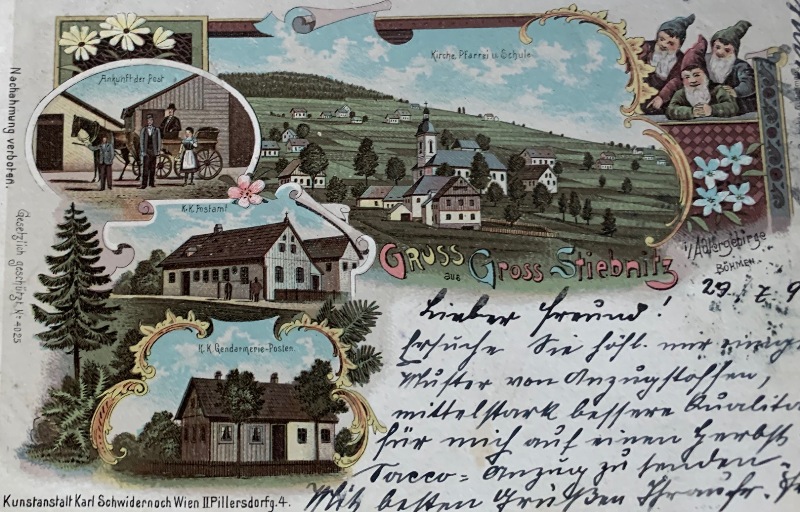 Kirche, Pfarrei u. Schule.
Ankunft der Post
K.K. Postamt
K.K. Gendarmerie-Posten.
GRUSS aus Gross Stiebnitz
i/Adlergebirge
BÖHMEN
Nachahmung verboten.
Gesetzlich geschützt. № 4025
29. 7. 9
Lieber Freund!
Ersuche Sie höfl. mir einige
Muster von Anzugstoffen,
mittelstark bessere Qualita
für mich auf einen Herbst
Sacco-Anzug zu senden.
Mit besten Grüßen Ihr
Kunstanstalt Karl Schwidernoch Wien II. Pillersdorfg. 4.